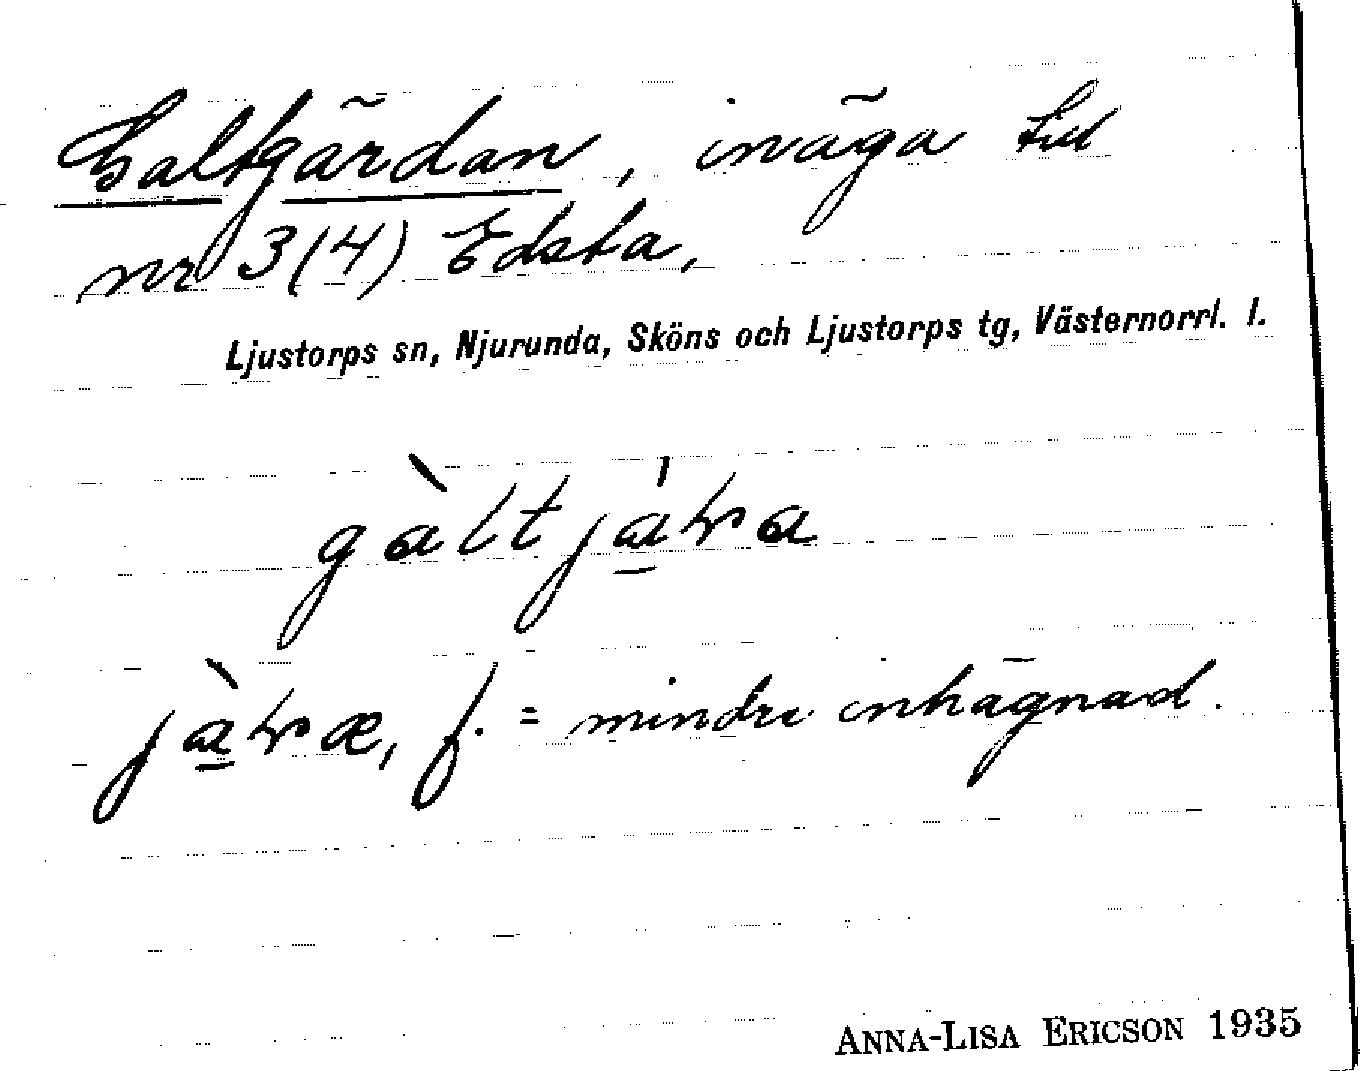 Galtgärdan, inäga till
nr 3(4) Edsta,
Ljustorps sn, Njurunda, Sköns och Ljustorps tg, Västernorrl. l.
f. = mindre inhägnad.
ANNA-LISA ERICSON 1935